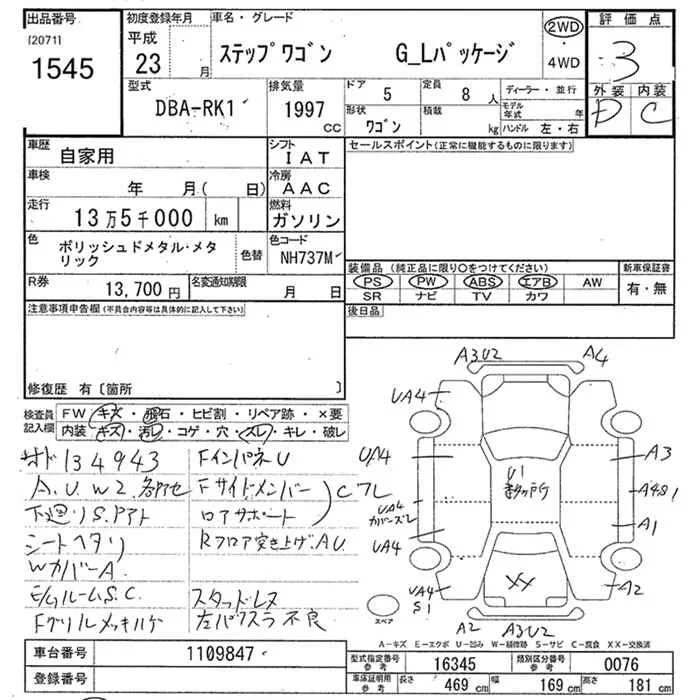 出品番号
[2071]
1545
初度登録年月
平成
23 月
車名・グレード
ステップワゴン G_Lパッケージ
2WD
・
4WD
評価点
3
外装 内装
D C
型式
DBA-RK1
排気量
1997
CC
ドア
5
定員
8 人
形状
ワゴン
積載
kg
ディーラー・並行
モデル
年式 年
ハンドル 左・右
車歴
自家用
シフト
IAT
車検
年 月( 日)
冷房
AAC
走行
13万5千000 km
燃料
ガソリン
色
ポリッシュドメタル・メタ
リック
色替
色コード
NH737M
R券
13,700円
名変通知期限
月 日
セールスポイント(正常に機能するものに限ります)
装備品(純正品に限り○をつけてください)
PS PW ABS エアB AW
SR ナビ TV カワ
新車保証書
有・無
後日品
注意事項申告欄(不具合内容等は具体的に記入して下さい)
修復歴 有〔箇所 〕
検査員
記入欄
FW キズ・飛石・ヒビ割・リペア跡・×要
内装 キズ・汚レ・コゲ・穴・スレ・キレ・破レ
134943
A.U.W2.
下廻りS.Pアト
シートヘタリ
WカバーA.
E/gルームS.C.
Fグリルメッキハゲ
FインパネU
Fサイドメンバー
ロアサポート
C フレ
Rフロア突き上げ.A.U.
スタッドレス
左パワスラ不良
A3U2
A4
UA4
UA4
UA4
カバーズレ
UA4
UA4
S1
U1
多数ヶ所
A3
A4S1
A1
A2
XX
A2
A3U2
スペア
A-キズ E-エクボ U-凹み W-補修跡 S-サビ C-腐食 XX-交換済
車台番号
1109847
登録番号
型式指定番号
参考
16345
類別区分番号
参考
0076
車庫証明用
参考
長さ
469 cm
幅
169 cm
高さ
181 cm